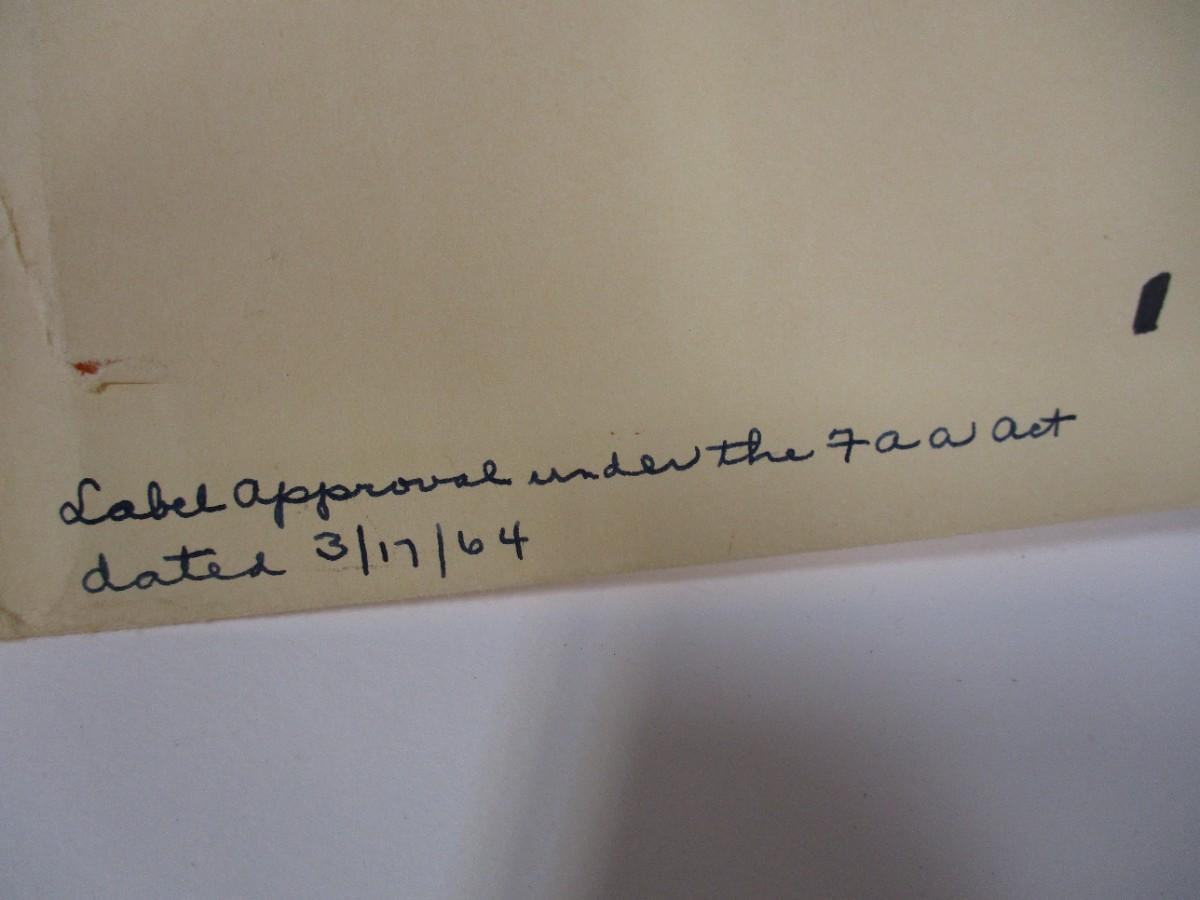 Label Approval under the FAA Act
dated 3/17/64